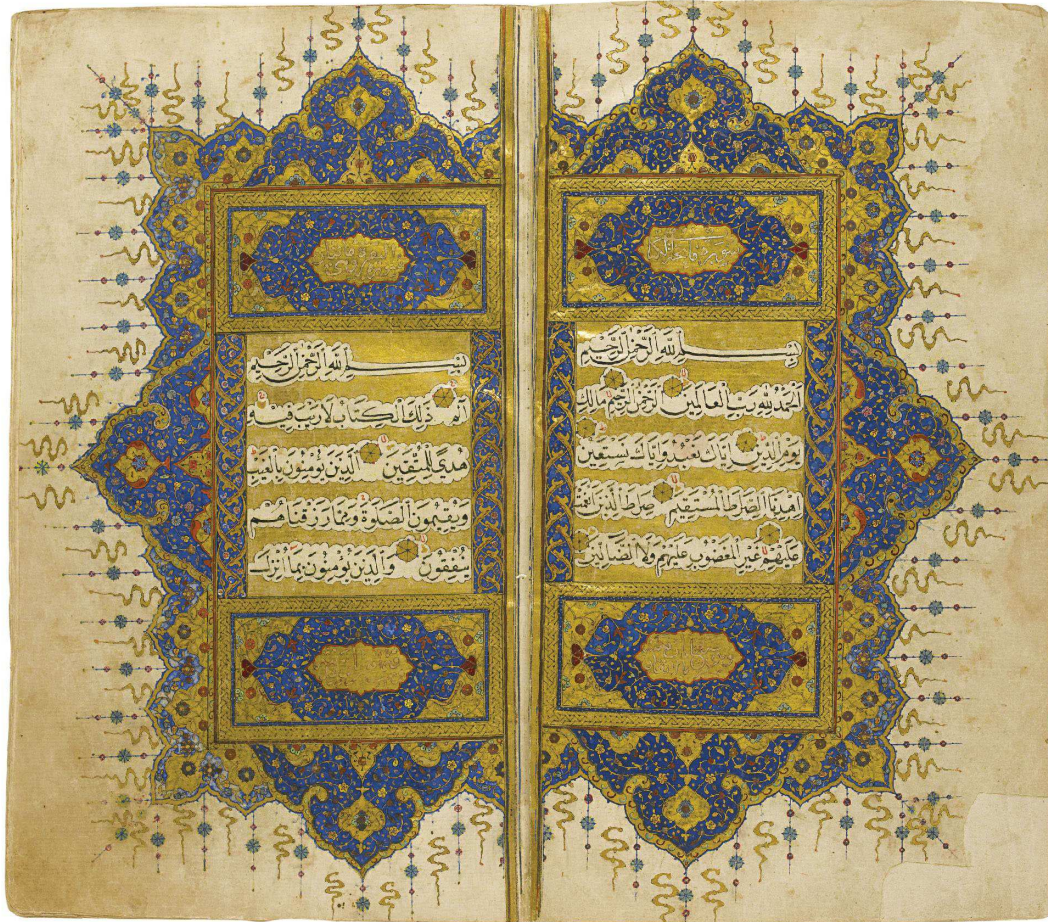 سورة فاتحة الكتاب
بسم الله الرحمن الرحيم
الحمد لله رب العالمين الرحمن الرحيم مالك
يوم الدين اياك نعبد واياك نستعين
اهدنا الصراط المستقيم صراط الذين انعمت
عليهم غير المغضوب عليهم ولا الضالين
بسم الله الرحمن الرحيم
الم ذلك الكتاب لا ريب فيه
هدى للمتقين الذين يؤمنون بالغيب
ويقيمون الصلوة ومما رزقناهم
ينفقون والذين يؤمنون بما انزل